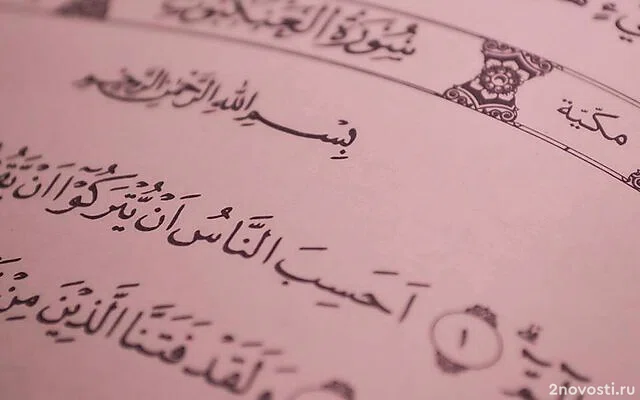 سُورَةُ العَنكَبُوتِ
مَكِّيَّة
بِسْمِ اللّٰهِ الرَّحْمٰنِ الرَّحِيْمِ
١ اَحَسِبَ النَّاسُ اَنْ يُّتْرَكُوْٓا اَنْ
وَلَقَدْ فَتَنَّا الَّذِيْنَ مِنْ
2novosti.ru